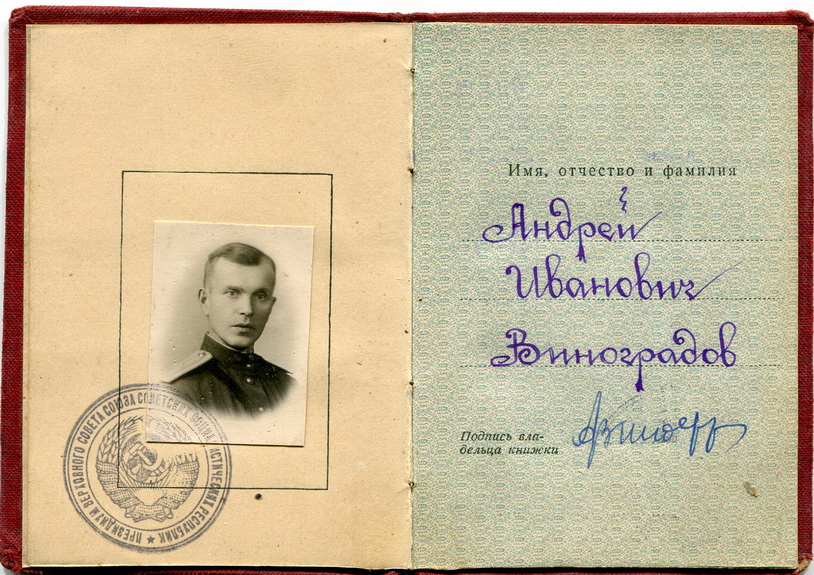 ПРЕЗИДИУМ ВЕРХОВНОГО СОВЕТА СОЮЗА СОВЕТСКИХ СОЦИАЛИСТИЧЕСКИХ РЕСПУБЛИК
Имя, отчество и фамилия
Андрей
Иванович
Виноградов
Подпись вла-
дельца книжки